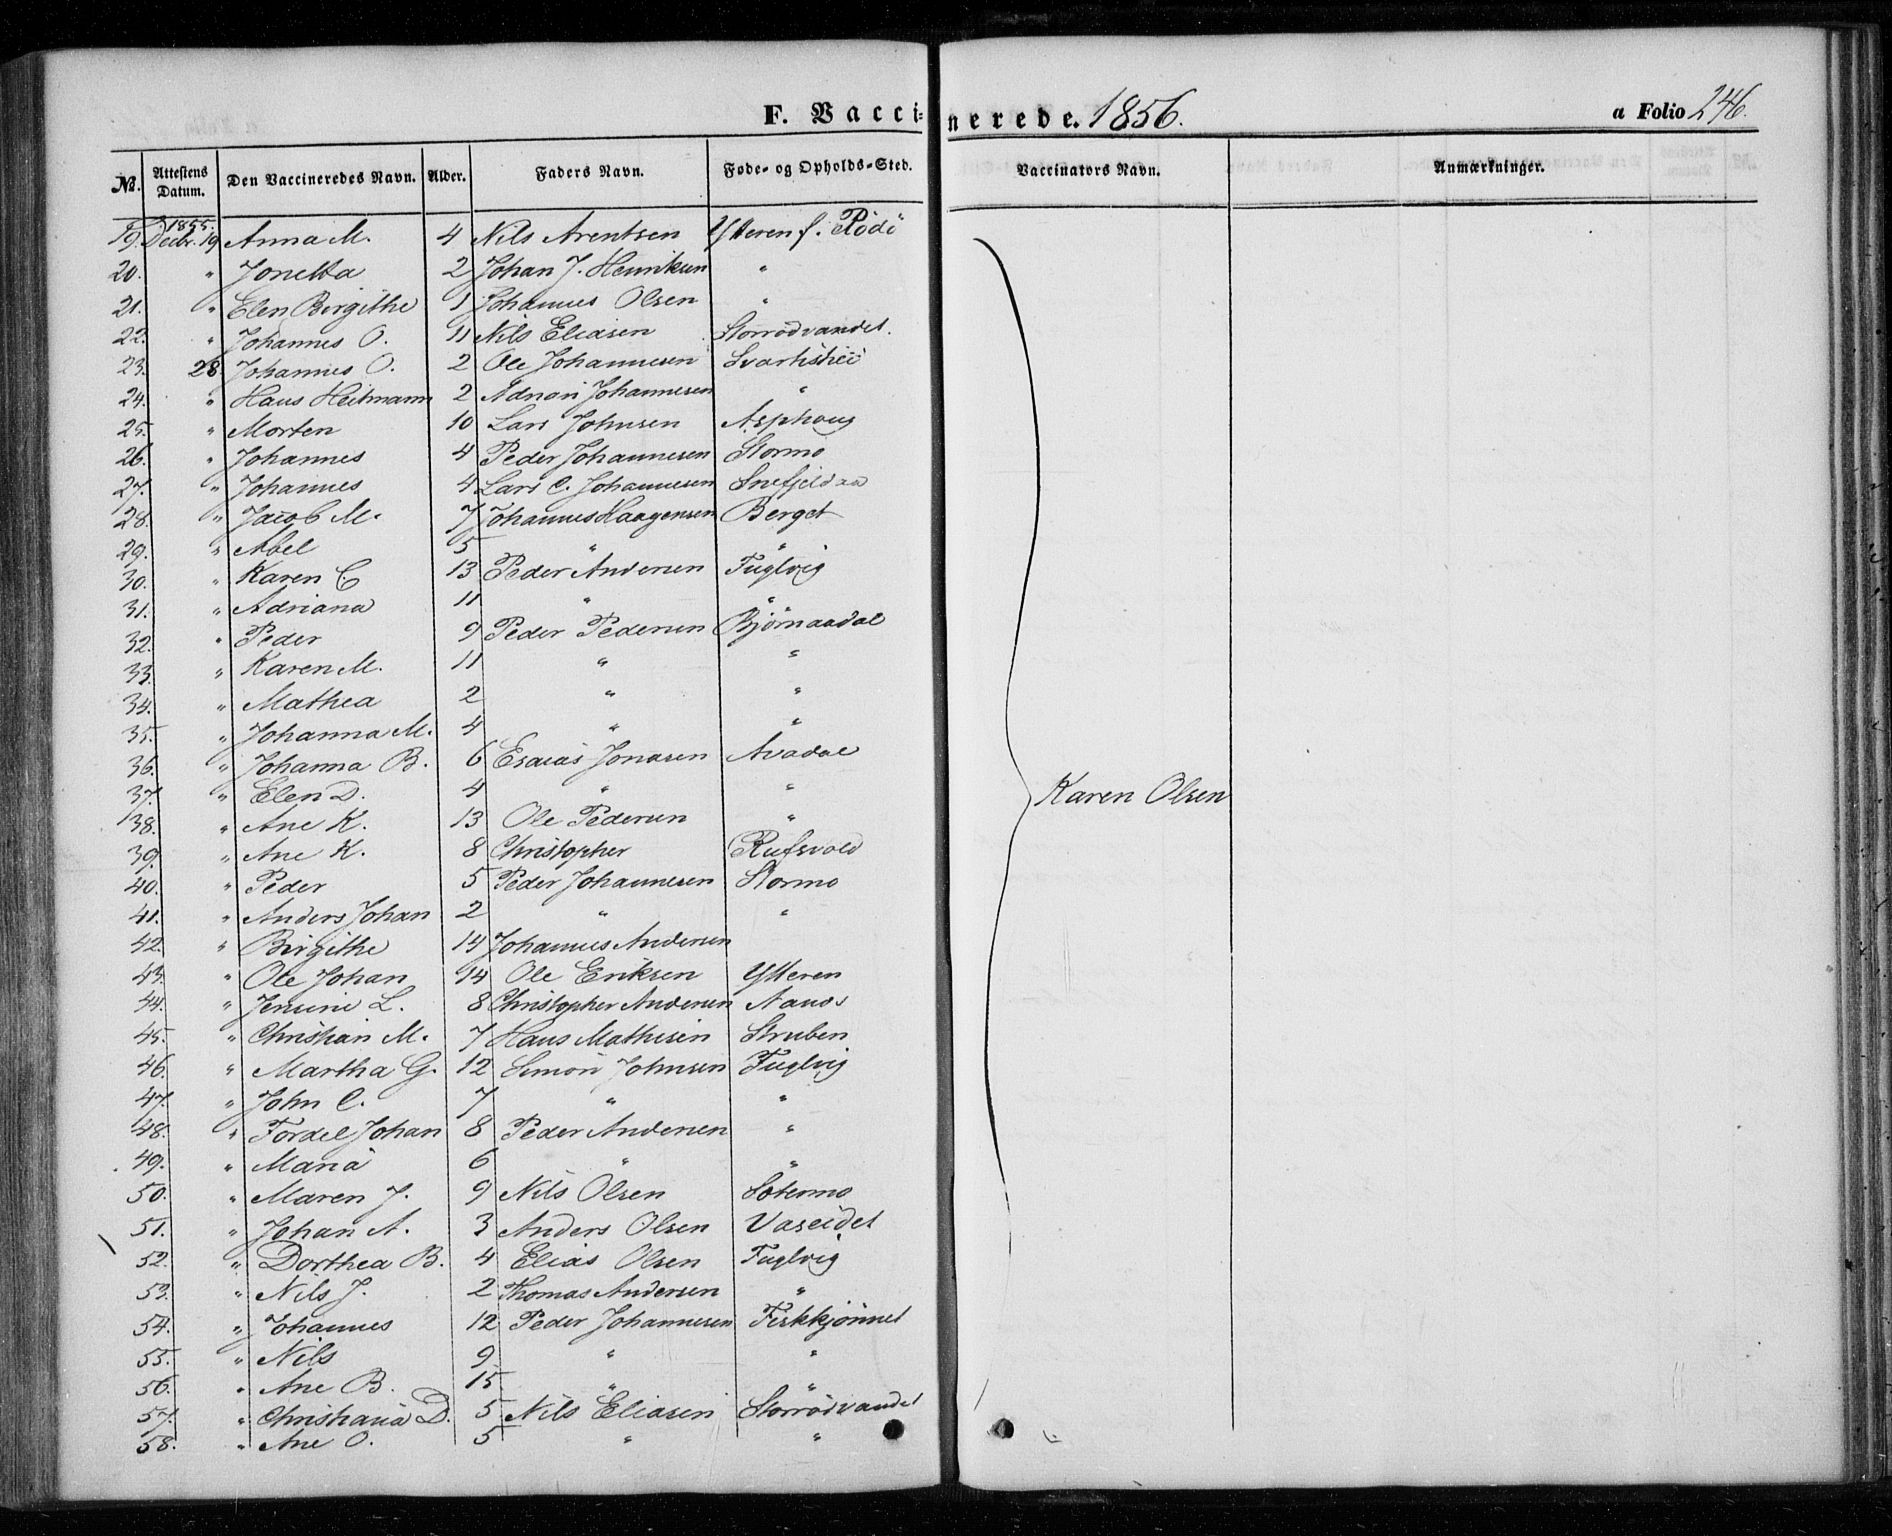 F. Vaccinerede. 1856. a Folio 246.
No. Attestens Datum. Den Vaccineredes Navn. Alder. Faders Navn. Føde- og Opholds-Sted. Vaccinators Navn. Anmærkninger.
1855.
19. Decbr. 19 Anna M. 4 Nils Arentsen Ytteren f. Rödö
20. " Jonetta 2 Johan J. Henriksen "
21. " Elen Birgithe 1 Johannes Olsen "
22. " Johannes O. 11 Nils Eliasen Storrødvandet.
23. 28. Johannes O. 2 Ole Johannesen
24. " Hans Heitmann 2 Johannesen "
25. " Morten 10 Lars Johnsen Asphaug
26. " Johannes 4 Peder Johannesen Stormo
27. " Johannes 4 Lars C. Johannesen Snefjeldaa
28. " Jacob M. 7 Johannes Haagensen Berget
29. " Abel 5 " "
30. " Karen C. 13 Peder Andersen Fuglvig
31. " Adriana 11 " "
32. " Peder 9 Peder Pedersen Bjørnaadal
33. " Karen M. 11 " "
34. " Mathea 2 " "
35. " Johanna M. 4 " "
36. " Johanna B. 6 Esaias Jonasen Avadal
37. " Elen D. 4 " "
Karen Olsen
38. " Ane K. 13 Ole Pedersen "
39. " Ane K. 8 Christopher Rufsvold
40. " Peder 5 Peder Johannesen Stormo
41. " Anders Johan 2 " "
42. " Birgithe 14 Johannes Andersen
43. " Ole Johan 14 Ole Eriksen Ytteren
44. " Jensine L. 8 Christopher Andersen
45. " Christian M. 7 Hans Mathisen Struben
46. " Martha G. 12 Simon Johnsen Fuglvig
47. " John C. 7 " "
48. " Fordel Johan 8 Peder Andersen "
49. " Maria 6 " "
50. " Maren J. 9 Nils Olsen
51. " Johan A. 3 Anders Olsen Vaseidet
52. " Dorthea B. 4 Elias Olsen Fuglvig
53. " Nils J. 2 Thomas Andersen "
54. " Johannes 12 Peder Johannesen Fiskkjønnet
55. " Nils 9 " "
56. " Ane B. 15 " "
57. " Christiana D. 5 Nils Eliasen Storrødvandet
58. " Ane O. 5 " "